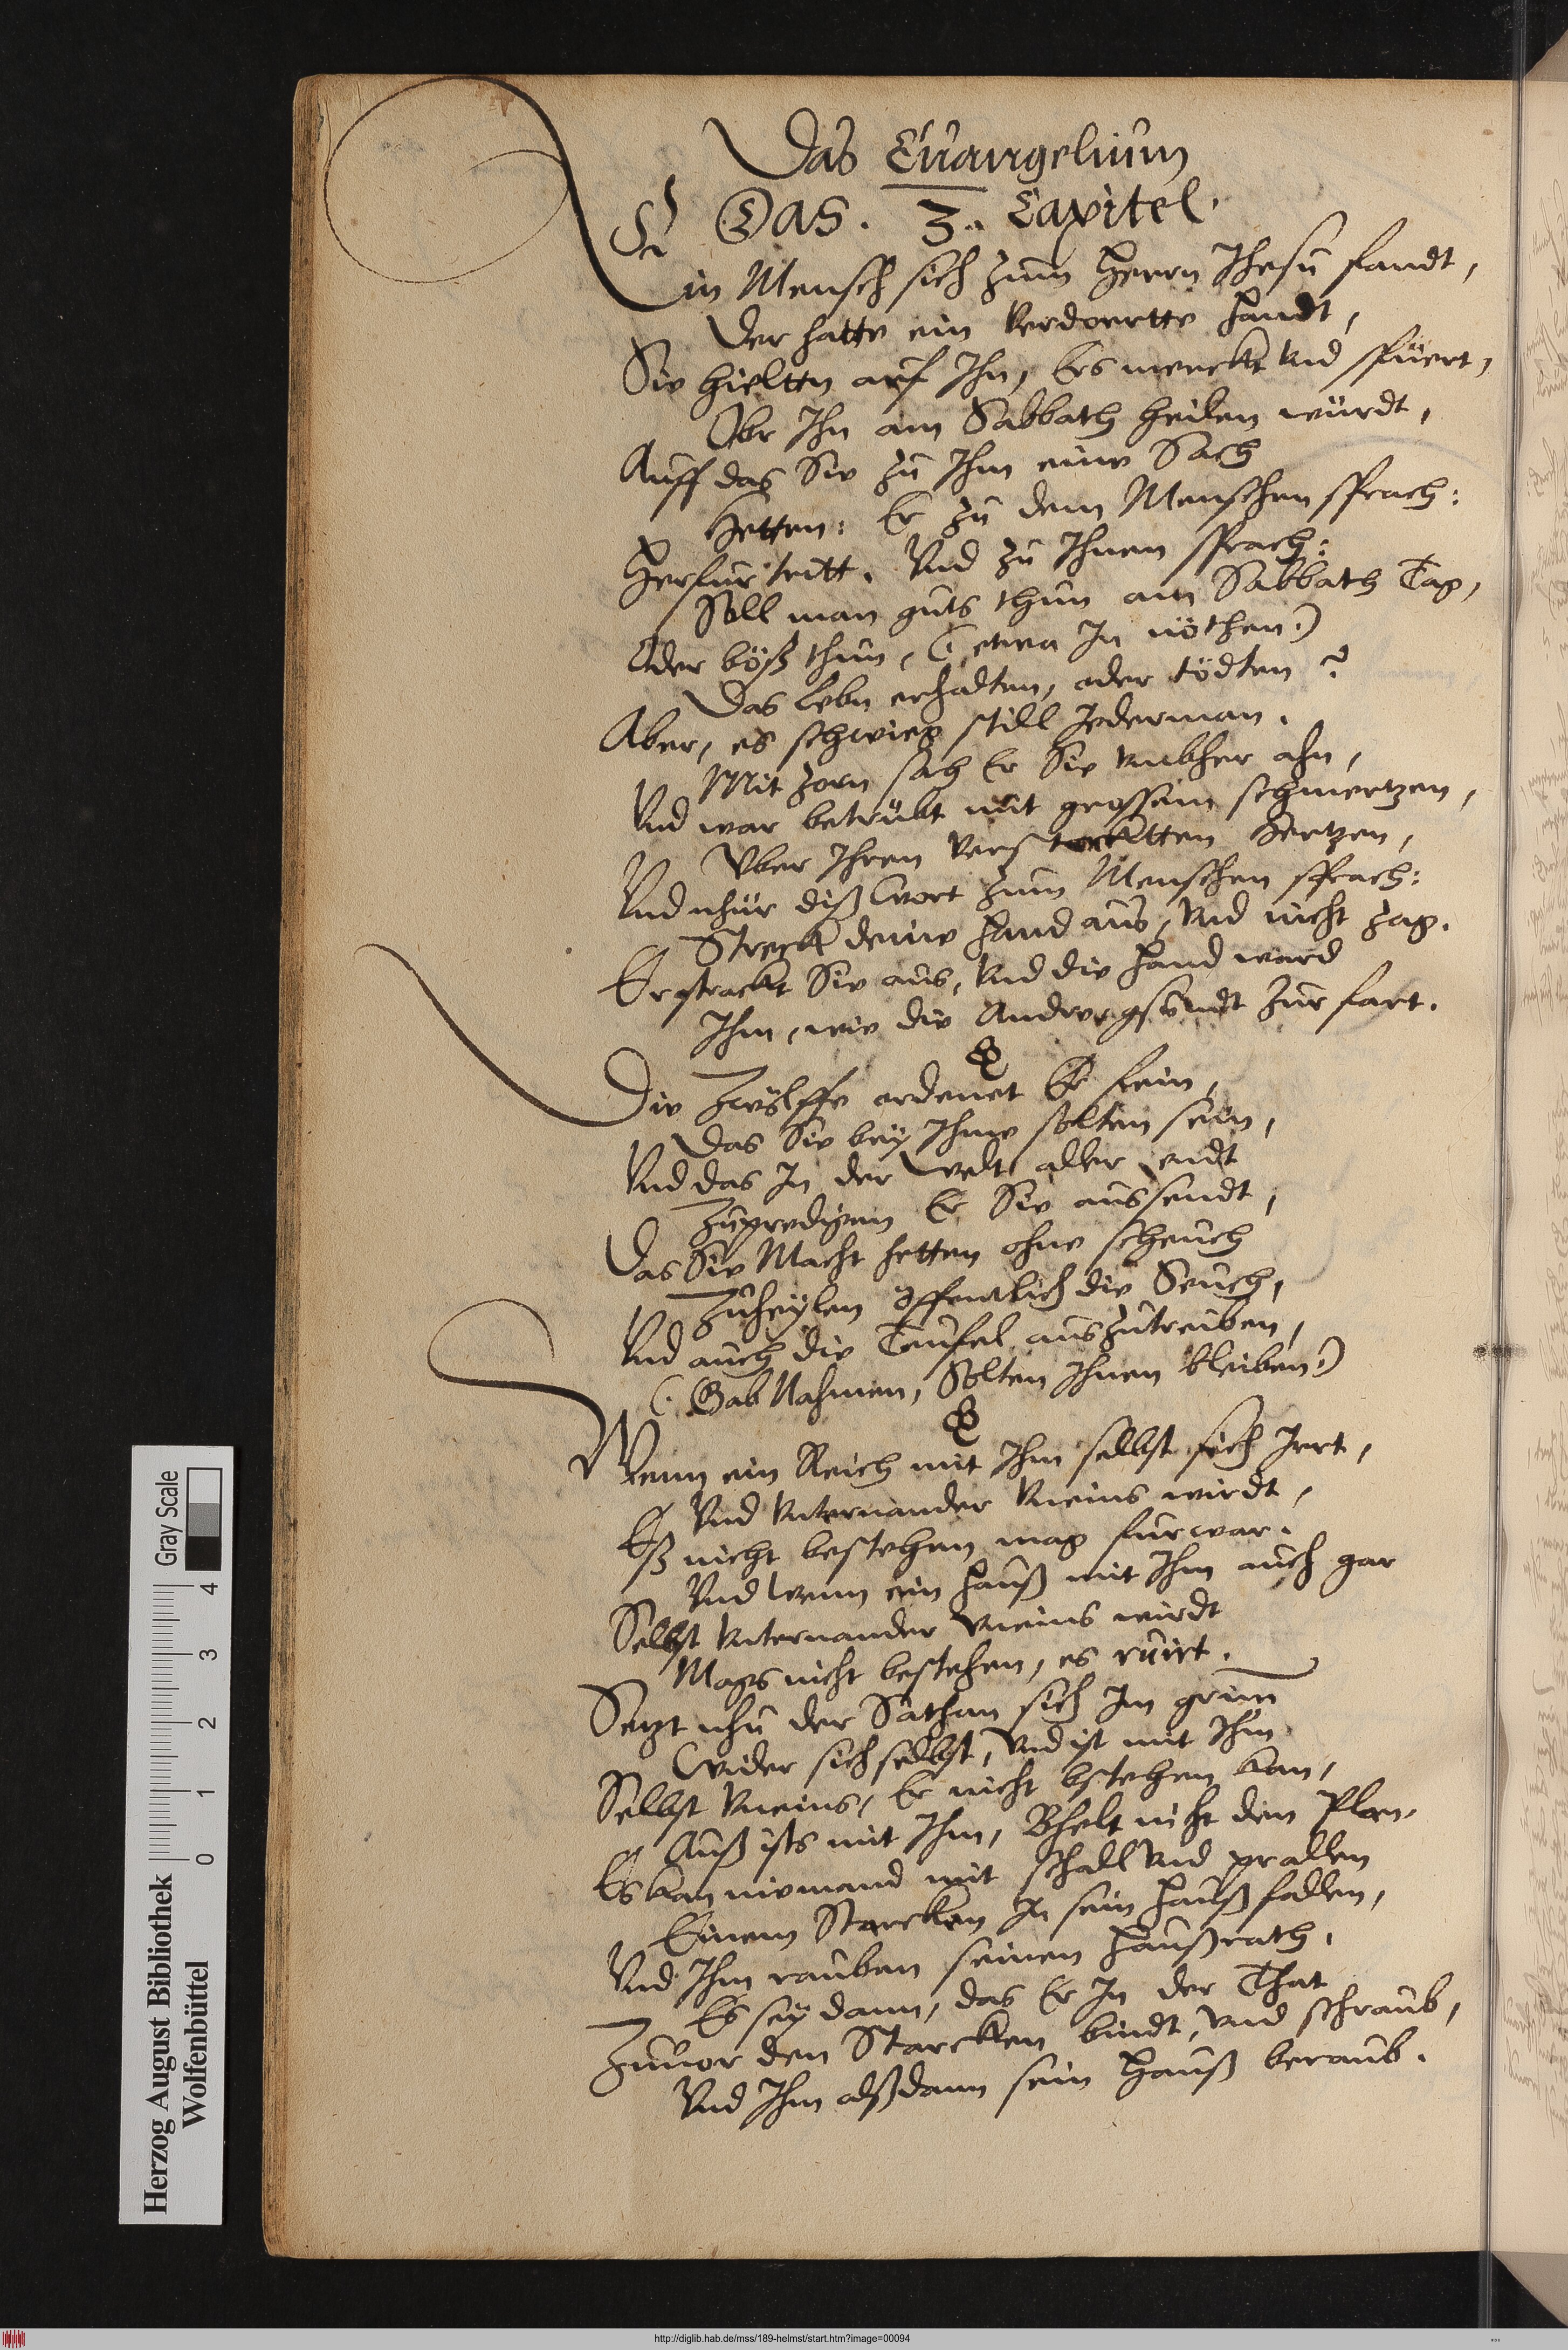 Das Euangelium
Das. 3. Capitel.
Ein Mensch sich zum Herrn Jhesu fandt,
Der hatte ein verdoertte Handt,
Sie hieltn auf Ihn, Ers merckt vnd spüert,
Obr Ihn am Sabbath heilen würdt,
Auff das Sie zu Ihm eine Sach
Hetten: Er zu dem Menschen sprach:
Herfur tritt. Vnd zu Ihnen sprach:
Soll man guts thun am Sabbath Tag,
Oder böß thun, (: etwa In nöthen:)
Das lebn erhalten, oder tödten?
Aber, es schwieg still Jederman.
Mit Zorn sah Er Sie vmbher ahn,
Vnd war betrübt mit grossem schmertzen,
Vber Ihren verstocktten Hertzen,
Vnd nhur diß wort zum Menschen sprach:
Streck deine Hand aus, vnd nicht zag.
Er strackt Sie aus, vnd die Hand ward
Ihm, wie die Ander gsundt zur fart.
Die Zwölffe ordenet Er fein,
Das Sie bey Ihme solten sein,
Vnd das In der Welt aller endt
Zupredigen Er Sie aussendt,
Das Sie Macht hetten ohne scheuch
Zuheylen öffentlich die Seuch,
Vnd auch die Teufel auszutreiben,
(: Gab Nahmen, Solten Ihnen bleiben:)
Wenn ein Reich mit Ihm selbst sich Irrt,
Vnd vnternander vneins wirdt,
Eß nicht bestehen mag furwar.
Vnd wenn ein Hauß mit Ihm auch gar
Selbst vnternander vneins wirdt
Mags nicht bestehen, es ruirt.
Setzt nhu der Sathan sich Im grim
Wider sich selbst, vnd ist mit Ihm
Selbst vneins, Er nicht bstehen kan,
Auß ists mit Ihm, Bhelt nicht den Plan.
Es kan niemand mit schall vnd prallen
Einem Starcken In sein Hauß fallen,
Vnd Ihm rauben seinen Haußrath,
Es sey dann, das Er In der That
Zuuor den Starcken bindt, vnd schraub,
Vnd Ihm alßdann sein Hauß beraub.
Herzog August Bibliothek
Wolfenbüttel
Gray Scale
0 1 2 3 4
http://diglib.hab.de/mss/189-helmst/start.htm?image=00094